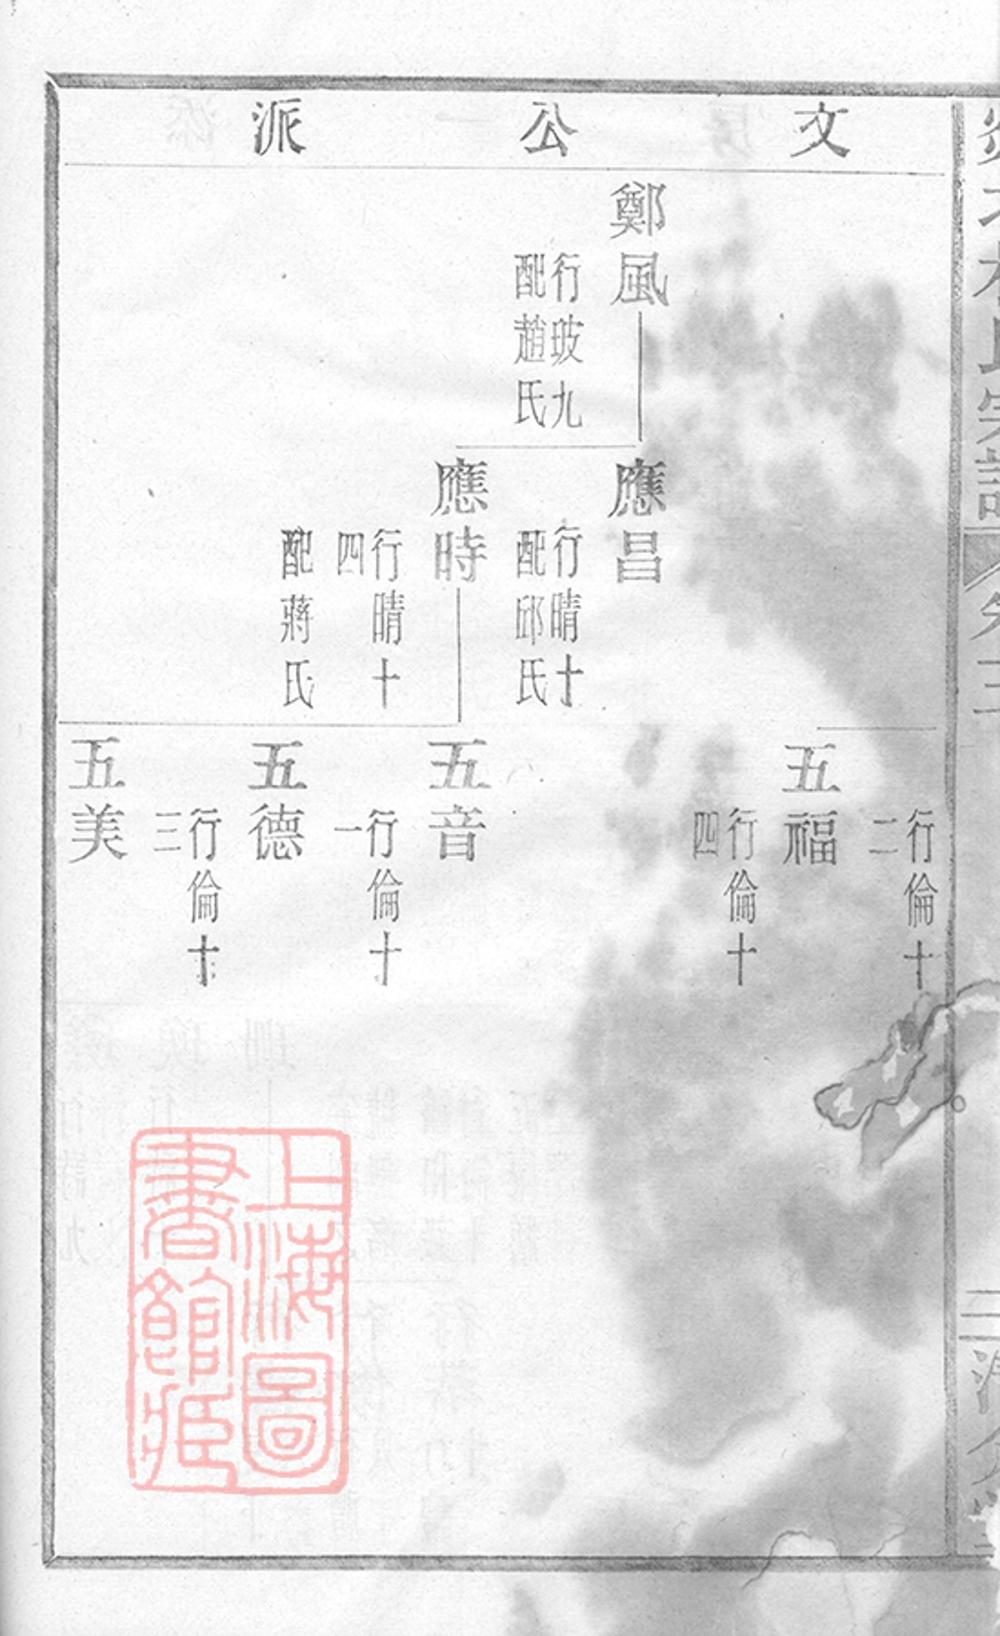 文公派
鄭風
行玻九
配趙氏
應昌
行晴十
配邱氏
應時
行晴十
四
配蔣氏
行倫十
二
五福
行倫十
四
五音
行倫十
一
五德
行倫十
三
五美
上海圖
書館藏